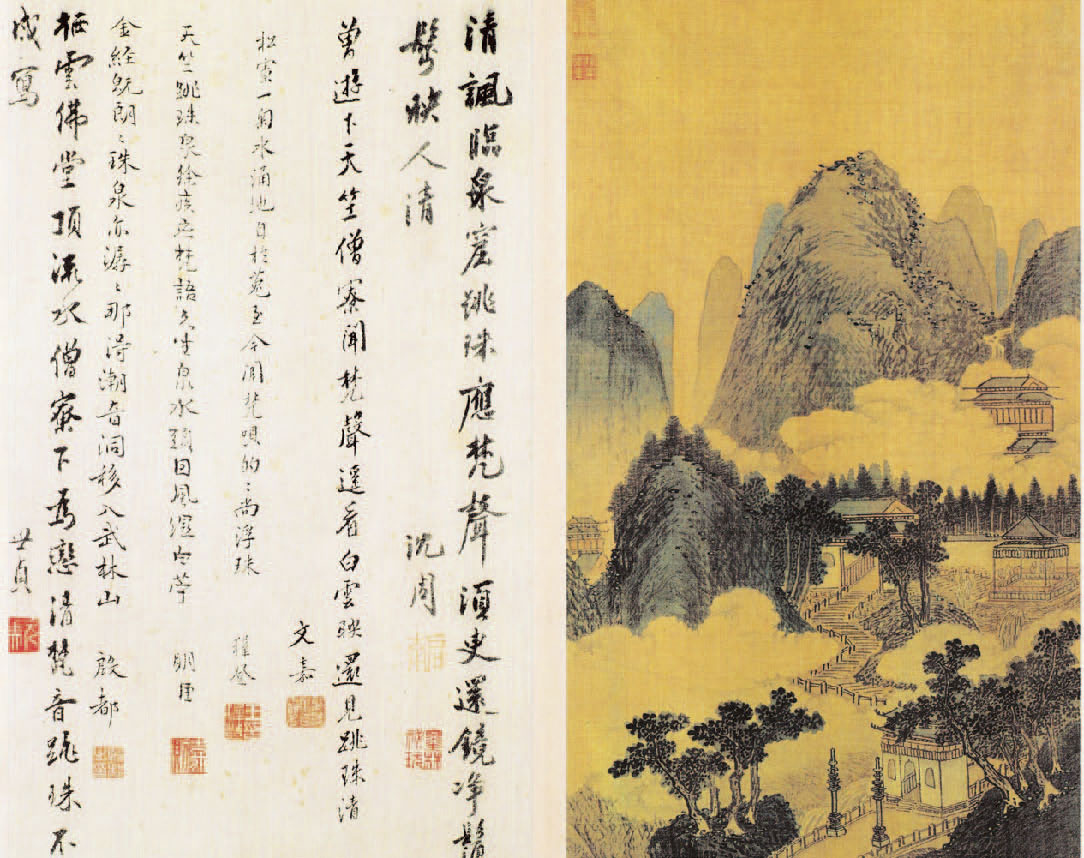 清諷臨泉窟跳珠應梵聲須臾還鏡淨鬚
髮映人清 沈周
曾遊下天竺僧寮聞梵聲遙看白雲映還見跳珠清
文嘉
松窗一匊水涌地自於菟至今聞梵唄的〻尚浮珠 穉登
天竺跳珠泉徐疾應梵語久坐泉水頭因風濕白苧 明臣
金經既朗〻珠泉亦潺〻那得潮音洞移入武林山 殷都
栖雲佛堂頂流水僧寮下為戀清梵音跳珠不
成寫 世貞